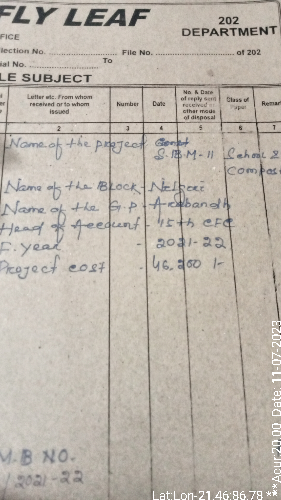 FLY LEAF
202
DEPARTMENT
FFICE
llection No. File No. of 202
ial No. To
LE SUBJECT
Letter etc. From whom received or to whom issued
Number
Date
No. & Date of reply sent received or other mode of disposal
Class of Paper
Remar
2 3 4 5 6 7
Name of the project S.B.M-11 School &
Compou
Name of the Block -
Name of the G.P -
Head of Account - 15th CFC
F. year - 2021-22
Project cost - 46,200 /-
M.B NO.
/2021-22
Lat:Lon-21.46:86.78
***Acur:20.00 Date: 11-07-2023